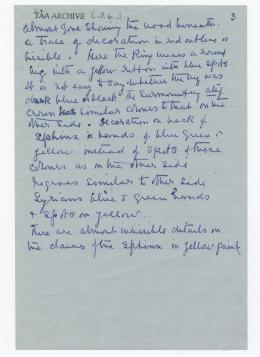 TAA ARCHIVE i.3.63
3
almost gone showing the wood beneath.
a trace of decoration in red outline is
visible. Here the King wears a round
wig, with a yellow ribbon with blue spots
It is not easy to say whether the wig was
dark blue or black. The surmounting atef
crown has similar colours to that on the
other side. Decoration on back of
Sphinx is bands of blue green &
yellow instead of spots of these
colours as on the other side
Negroes similar to other side
Syrians blue & green bands
& spots on yellow.
There are almost invisible details on
the claws of the Sphinx in yellow paint